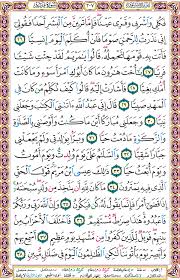 فَكُلِي وَاشْرَبِي وَقَرِّي عَيْنًا فَإِمَّا تَرَيِنَّ مِنَ الْبَشَرِ أَحَدًا فَقُولِي
إِنِّي نَذَرْتُ لِلرَّحْمَٰنِ صَوْمًا فَلَنْ أُكَلِّمَ الْيَوْمَ إِنسِيًّا ﴿٢٦﴾
فَأَتَتْ بِهِ قَوْمَهَا تَحْمِلُهُ قَالُوا يَٰمَرْيَمُ لَقَدْ جِئْتِ شَيْئًا
فَرِيًّا ﴿٢٧﴾ يَٰأُخْتَ هَٰرُونَ مَا كَانَ أَبُوكِ امْرَأَ سَوْءٍ وَمَا كَانَتْ
أُمُّكِ بَغِيًّا ﴿٢٨﴾ فَأَشَارَتْ إِلَيْهِ قَالُوا كَيْفَ نُكَلِّمُ مَن كَانَ فِي
الْمَهْدِ صَبِيًّا ﴿٢٩﴾ قَالَ إِنِّي عَبْدُ اللَّهِ ءَاتَٰنِيَ الْكِتَٰبَ وَجَعَلَنِي
نَبِيًّا ﴿٣٠﴾ وَجَعَلَنِي مُبَارَكًا أَيْنَ مَا كُنتُ وَأَوْصَٰنِي بِالصَّلَوٰةِ
وَالزَّكَوٰةِ مَا دُمْتُ حَيًّا ﴿٣١﴾ وَبَرًّا بِوَٰلِدَتِي وَلَمْ يَجْعَلْنِي
جَبَّارًا شَقِيًّا ﴿٣٢﴾ وَالسَّلَٰمُ عَلَيَّ يَوْمَ وُلِدتُّ وَيَوْمَ أَمُوتُ
وَيَوْمَ أُبْعَثُ حَيًّا ﴿٣٣﴾ ذَٰلِكَ عِيسَى ابْنُ مَرْيَمَ قَوْلَ الْحَقِّ
الَّذِي فِيهِ يَمْتَرُونَ ﴿٣٤﴾ مَا كَانَ لِلَّهِ أَن يَتَّخِذَ مِن وَلَدٍ سُبْحَٰنَهُ
إِذَا قَضَىٰ أَمْرًا فَإِنَّمَا يَقُولُ لَهُ كُن فَيَكُونُ ﴿٣٥﴾ وَإِنَّ اللَّهَ رَبِّي وَرَبُّكُمْ
فَاعْبُدُوهُ هَٰذَا صِرَٰطٌ مُّسْتَقِيمٌ ﴿٣٦﴾ فَاخْتَلَفَ الْأَحْزَابُ مِن
بَيْنِهِمْ فَوَيْلٌ لِّلَّذِينَ كَفَرُوا مِن مَّشْهَدِ يَوْمٍ عَظِيمٍ ﴿٣٧﴾ أَسْمِعْ
بِهِمْ وَأَبْصِرْ يَوْمَ يَأْتُونَنَا لَٰكِنِ الظَّٰلِمُونَ الْيَوْمَ فِي ضَلَٰلٍ مُّبِينٍ ﴿٣٨﴾